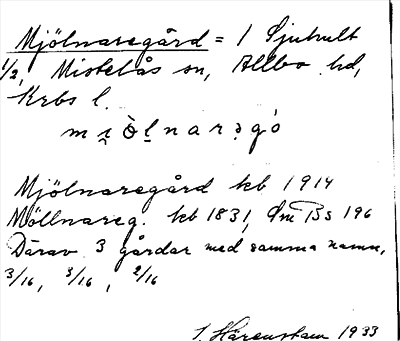 Mjölnaregård = 1 Sjuhult
1/2, Mistelås sn, Allbo hd,
Krbs l.
m i̯ ò l̠ n a r ə g ó
Mjölnaregård kb 1914
Möllnareg. kb 1831, Sm Bs 196
Därav 3 gårdar med samma namn,
3/16, 3/16, 2/16
J. Härenstam 1933